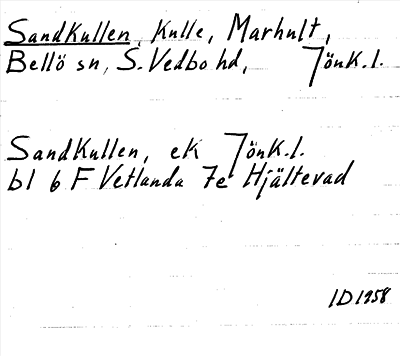 Sandkullen, Kulle, Marhult,
Bellö sn, S. Vedbo hd, Jönk. l.
Sandkullen, ek Jönk. l.
bl 6 F Vetlanda 7e Hjältevad
ID 1958